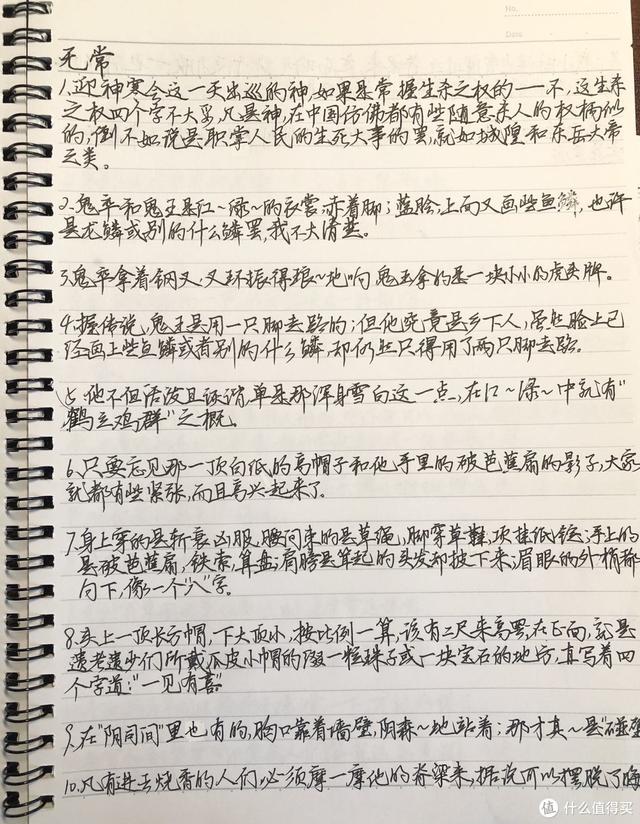 No.
Date
无常
1.迎神赛会这一天出巡的神,如果是掌握生杀之权的——不,这生杀
之权四个字不大妥,凡是神,在中国仿佛都有些随意杀人的权柄似
的,倒不如说是职掌人民的生死大事的罢,就如城隍和东岳大帝
之类。
2.鬼卒和鬼王是红~绿~的衣裳,赤着脚;蓝脸,上面又画些鱼鳞,也许
是龙鳞或别的什么鳞罢,我不大清楚。
3.鬼卒拿着钢叉,叉环振得琅~地响,鬼王拿的是一块小小的虎头牌。
4.据传说,鬼王是用一只脚走路的;但他究竟是乡下人,虽然脸上已
经画上些鱼鳞或者别的什么鳞,却仍然只得用了两只脚走路。
5.他不但活泼且诙谐,单是那浑身雪白这一点,在红~绿~中就有"
鹤立鸡群"之概。
6.只要望见那一顶白纸的高帽子和他手里的破芭蕉扇的影子,大家
就都有些紧张,而且高兴起来了。
7.身上穿的是斩衰凶服,腰间束的是草绳,脚穿草鞋,项挂纸锭;手上的
是破芭蕉扇,铁索,算盘;肩膀是耸起的,头发却披下来;眉眼的外梢都
向下,像一个"八"字。
8.头上一顶长方帽,下大顶小,按比例一算,该有二尺来高罢;在正面,就是
遗老遗少们所戴瓜皮小帽的缀一粒珠子或一块宝石的地方,直写着四
个字道:"一见有喜"
9.在"阴司间"里也有的,胸口靠着墙壁,阴森~地站着;那才真~是"碰壁
10.凡有进去烧香的人们,必须摩一摩他的脊梁来,据说可以摆脱了晦
值 什么值得买